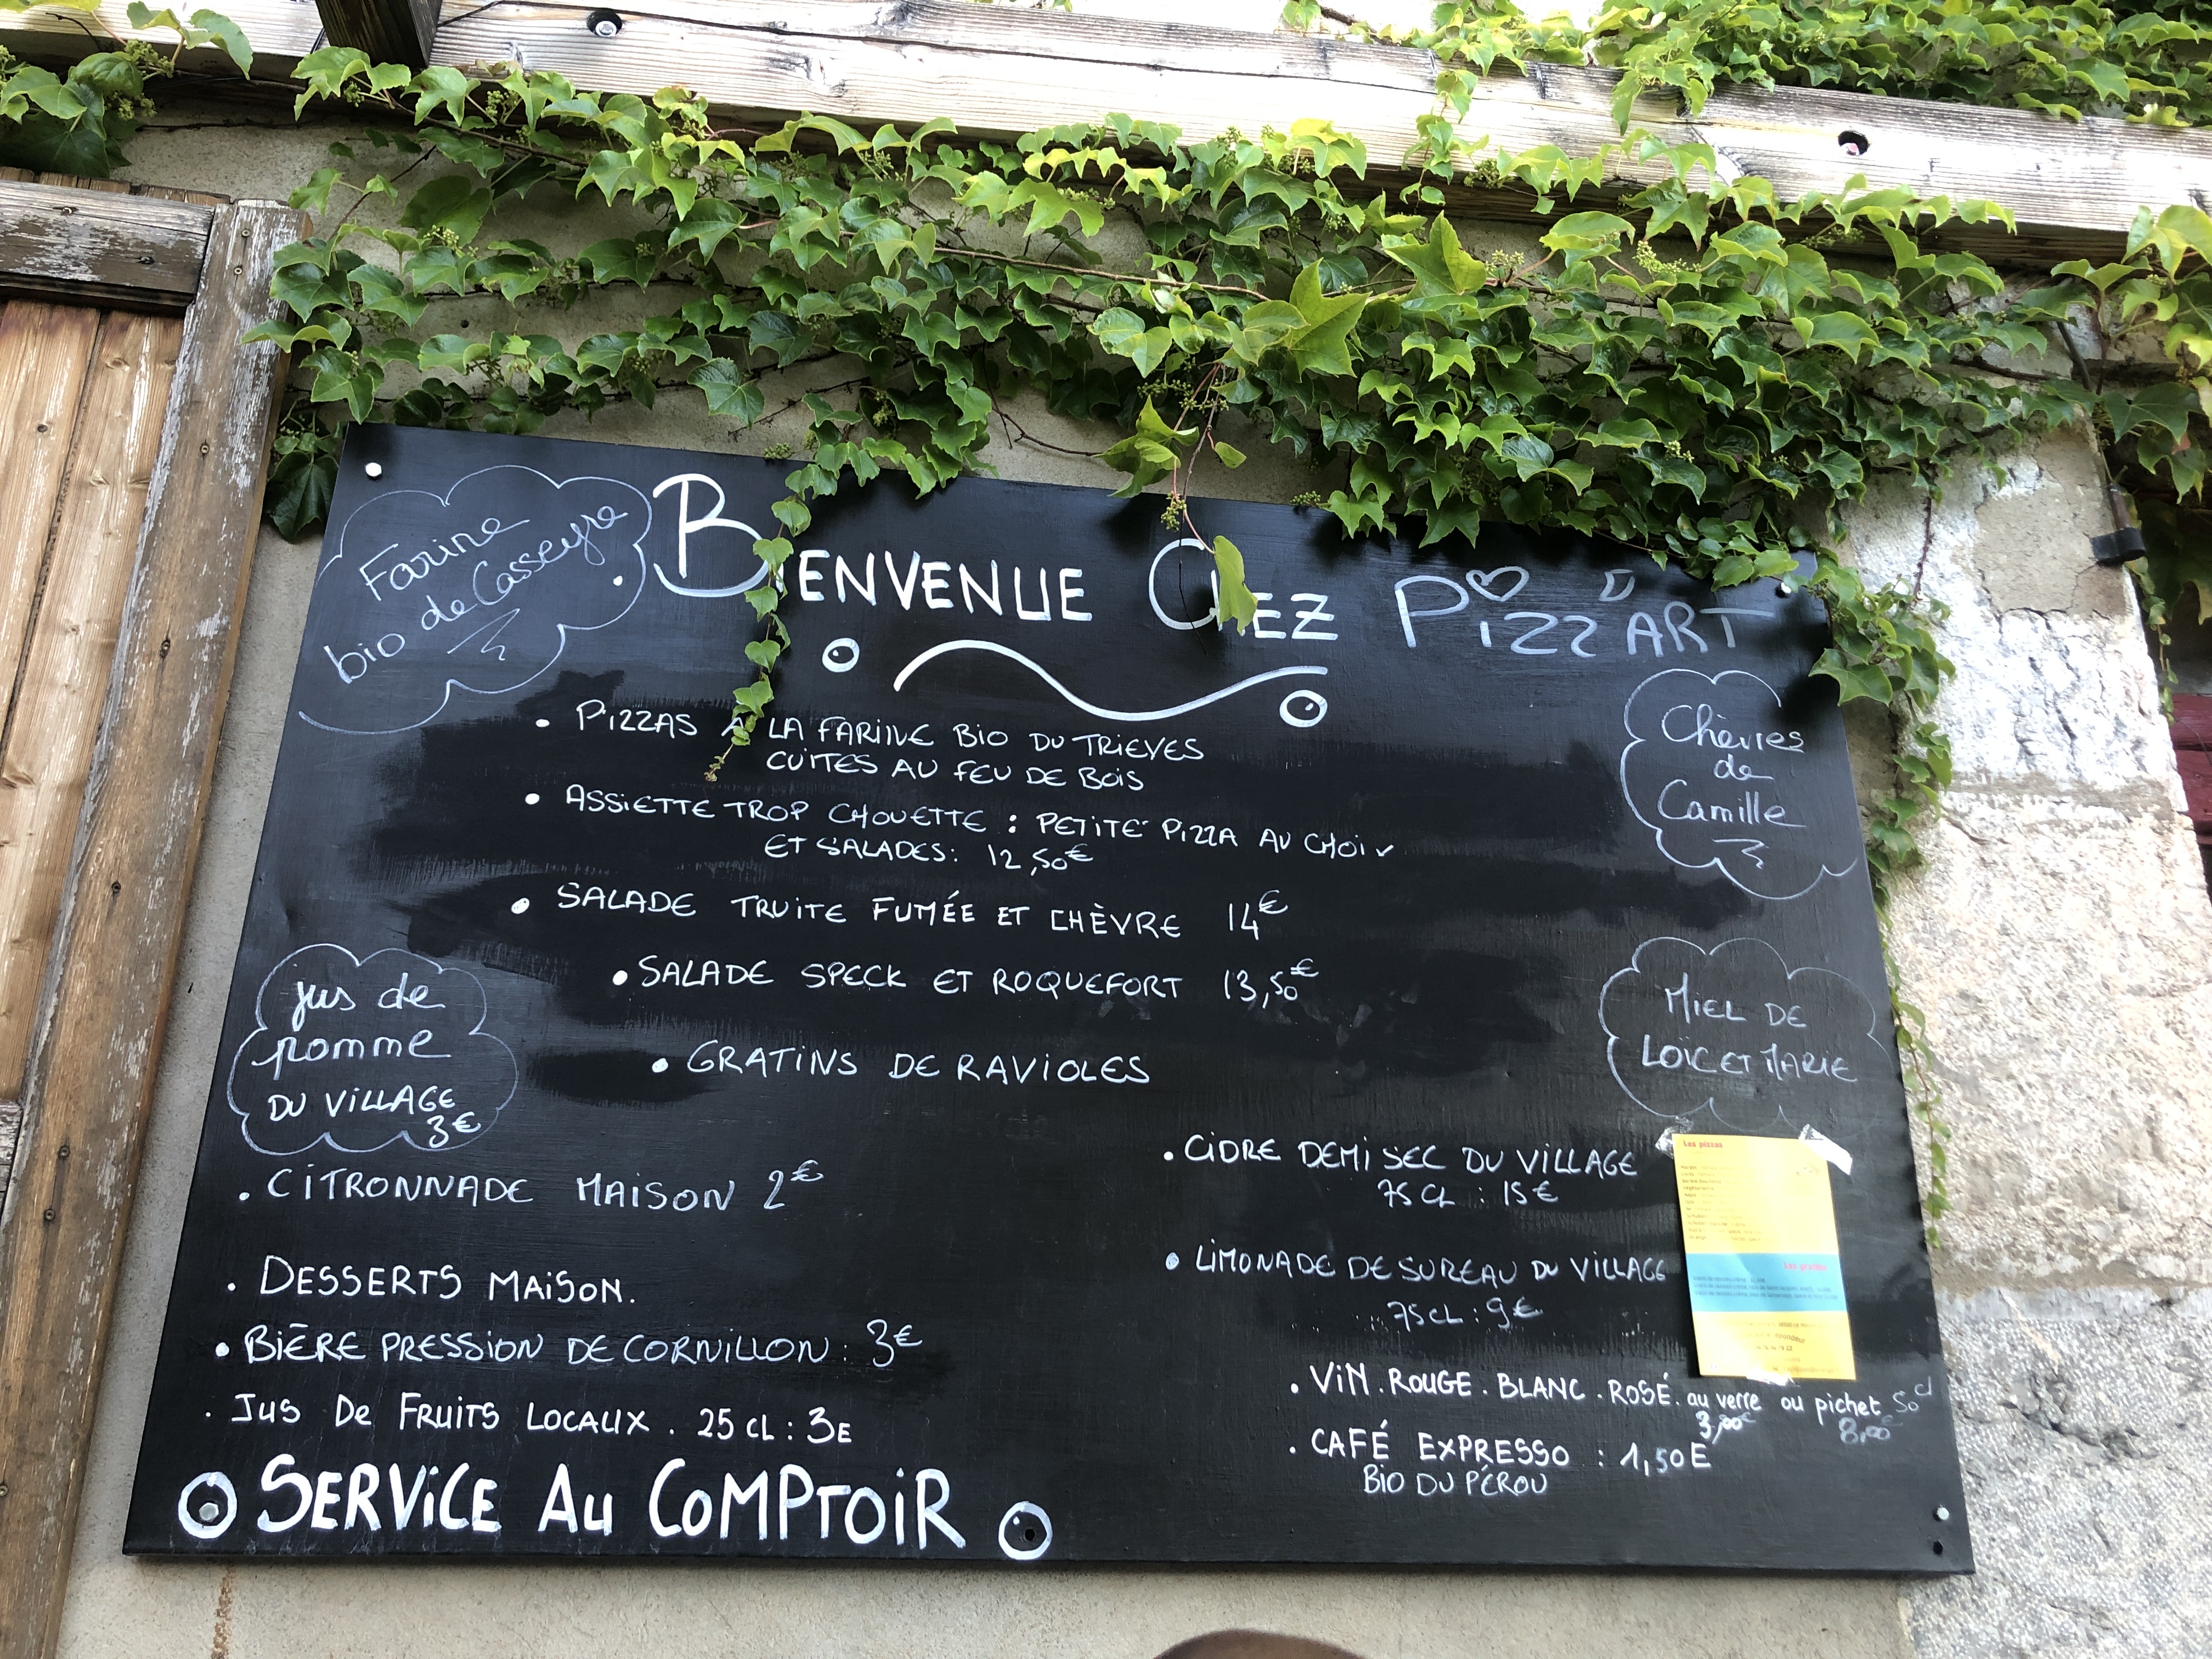 Farine
bio de Casseyre
BIENVENUE CHEZ PIZZ'ART
• PIZZAS A LA FARINE BIO DU TRIEVES
CUITES AU FEU DE BOIS
• ASSIETTE TROP CHOUETTE : PETITE PIZZA AU CHOIX
ET SALADES : 12,50€
• SALADE TRUITE FUMÉE ET CHÈVRE 14€
• SALADE SPECK ET ROQUEFORT 13,50€
• GRATINS DE RAVIOLES
Chèvres
de
Camille
MIEL DE
LOÏC ET MARIE
jus de
pomme
DU VILLAGE
3€
. CITRONNADE MAISON 2€
. DESSERTS MAISON.
• BIÈRE PRESSION DE CORNILLON : 3€
. JUS DE FRUITS LOCAUX . 25 CL : 3E
SERVICE AU COMPTOIR
. CIDRE DEMI SEC DU VILLAGE
75 CL : 15€
• LIMONADE DE SUREAU DU VILLAGE
75CL : 9€
. VIN . ROUGE . BLANC . ROSÉ . au verre ou pichet 50 cl
3,00€ 8,00€
. CAFÉ EXPRESSO : 1,50E
BIO DU PÉROU
Les pizzas
Les gratins